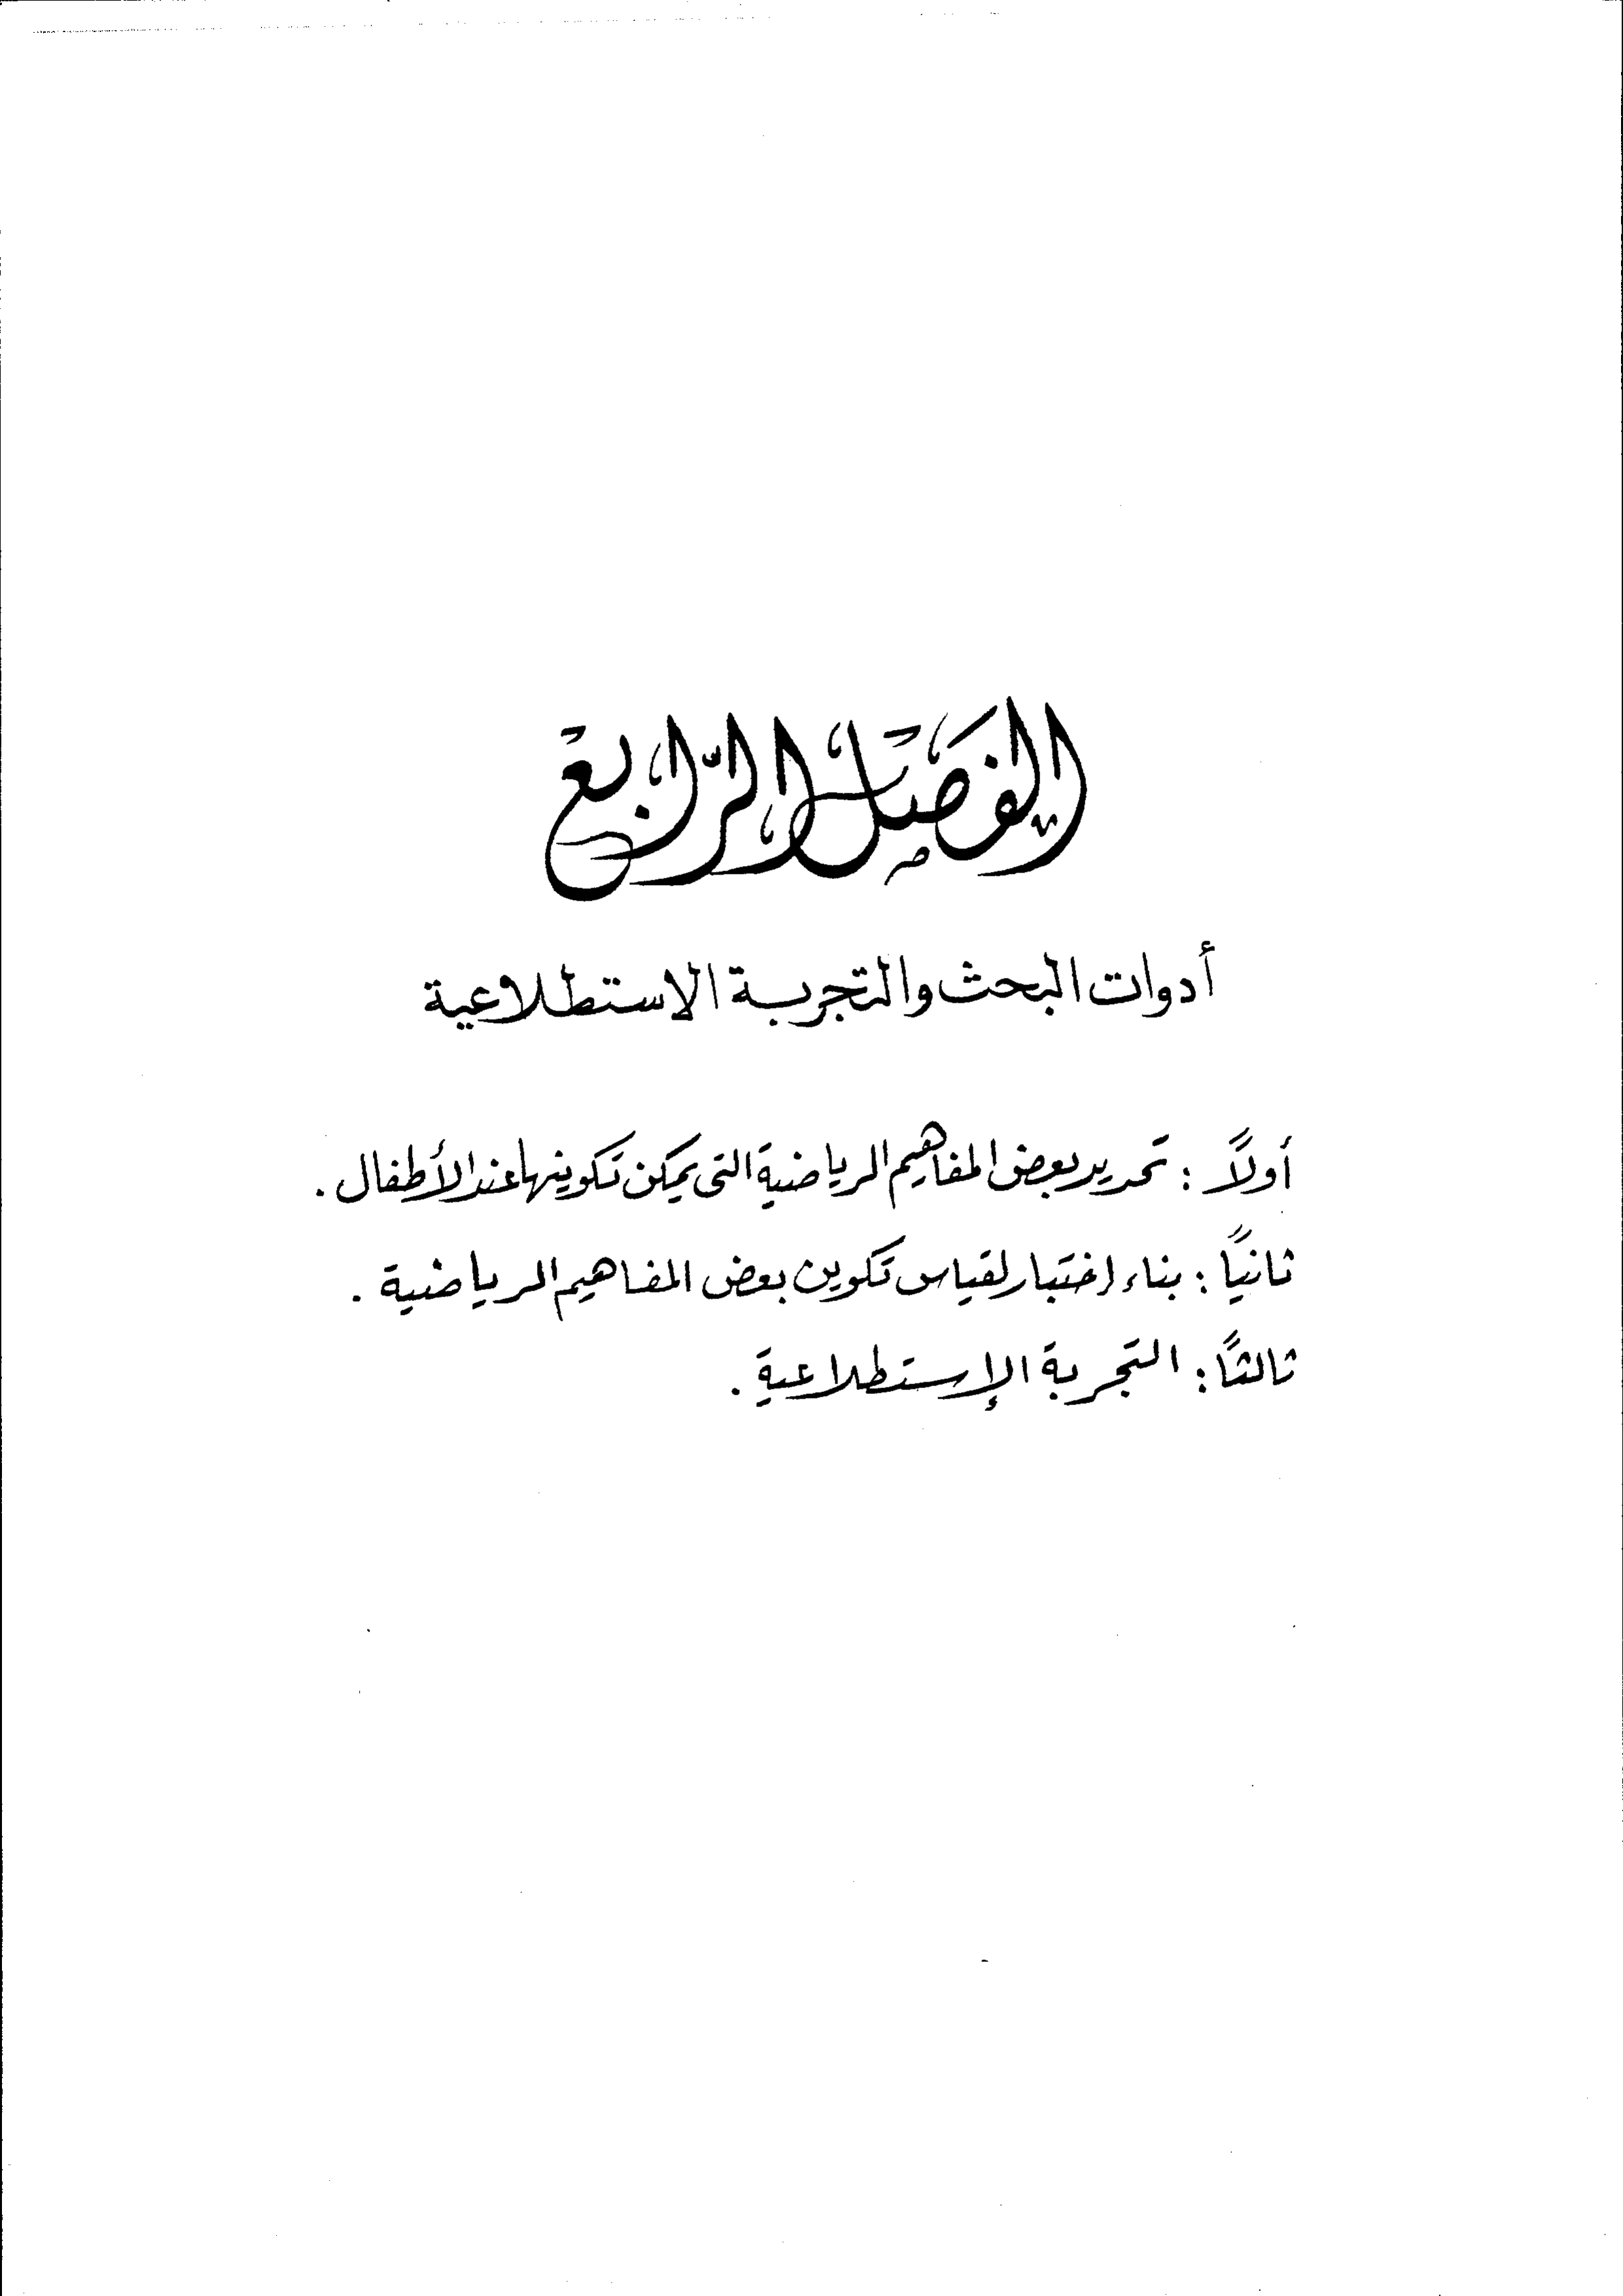 الفصل الرابع
أدوات البحث والتجربة الاستطلاعية
أولاً : تحديد بعض المفاهيم الرياضية التى يمكن تكوينها عند الأطفال .
ثانياً : بناء إختبار لقياس تكوين بعض المفاهيم الرياضية .
ثالثاً : التجربة الإستطلاعية .